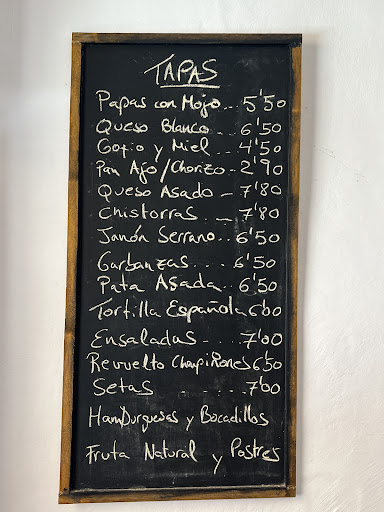 TAPAS
Papas con Mojo... 5'50
Queso Blanco.. 6'50
Gofio y Miel .. 4'50
Pan Ajo/Chorizo - 2'90
Queso Asado - 7'80
Chistorras. . _ 7'80
Jamón Serrano.. 6'50
Garbanzas. . . 6'50
Pata Asada.. 6'50
Tortilla Española 6'00
Ensaladas. . .. 7'00
Revuelto Champiñones 6'50
Setas .... 7'00
Hamburguesas y Bocadillos
Fruta Natural y Postres